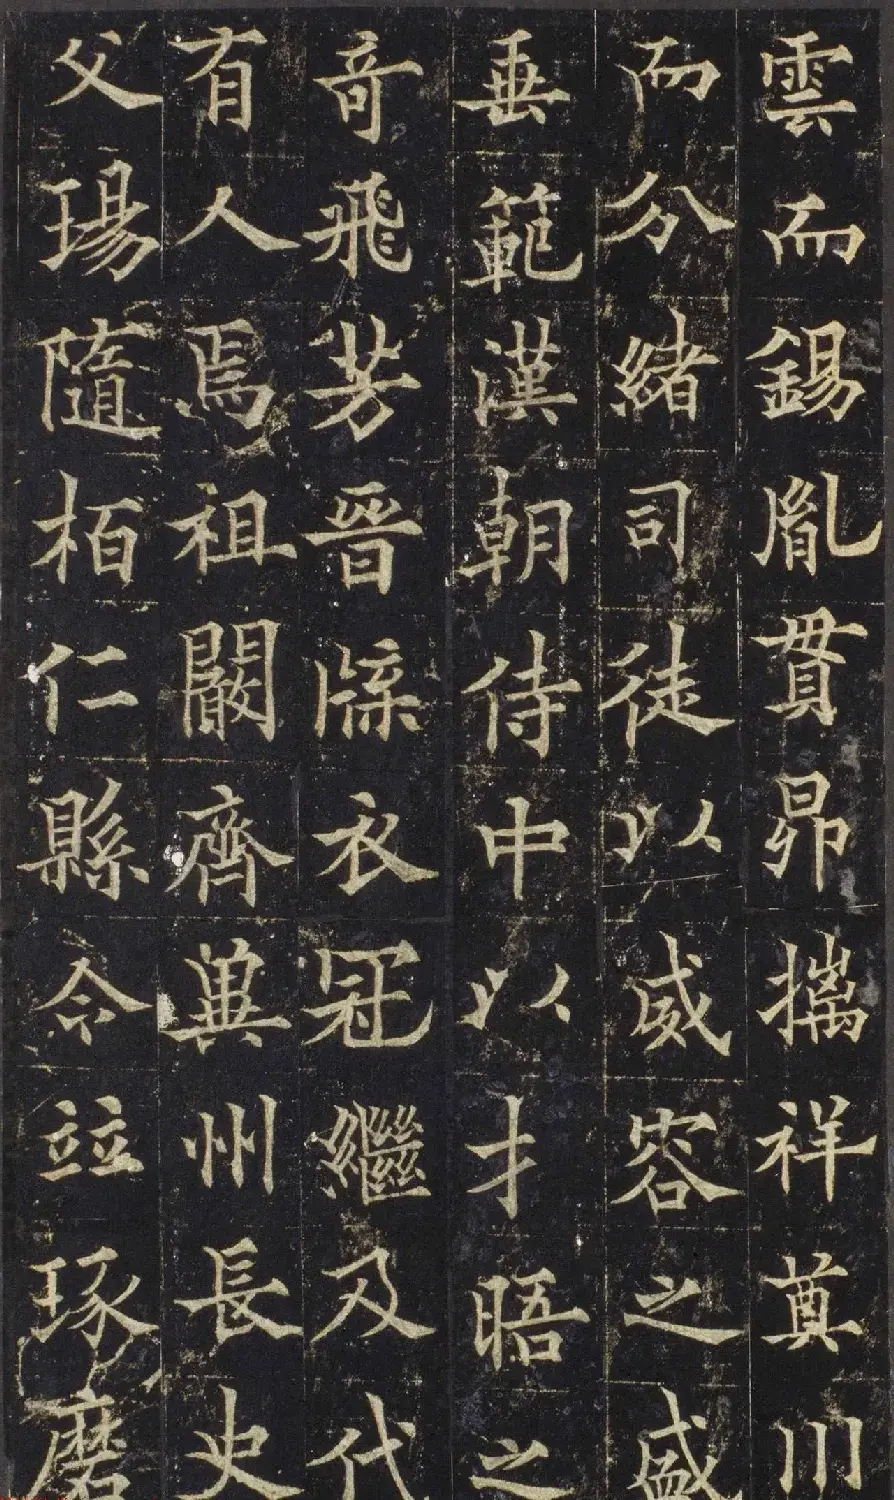 雲而錫胤貫昴摛祥奠川
而分緒司徒以威容之盛
垂範漢朝侍中以才晤之
竒飛芳晉牒衣冠繼及代
有人焉祖闞齊冀州長史
父瑒隨栢仁縣令竝琢磨